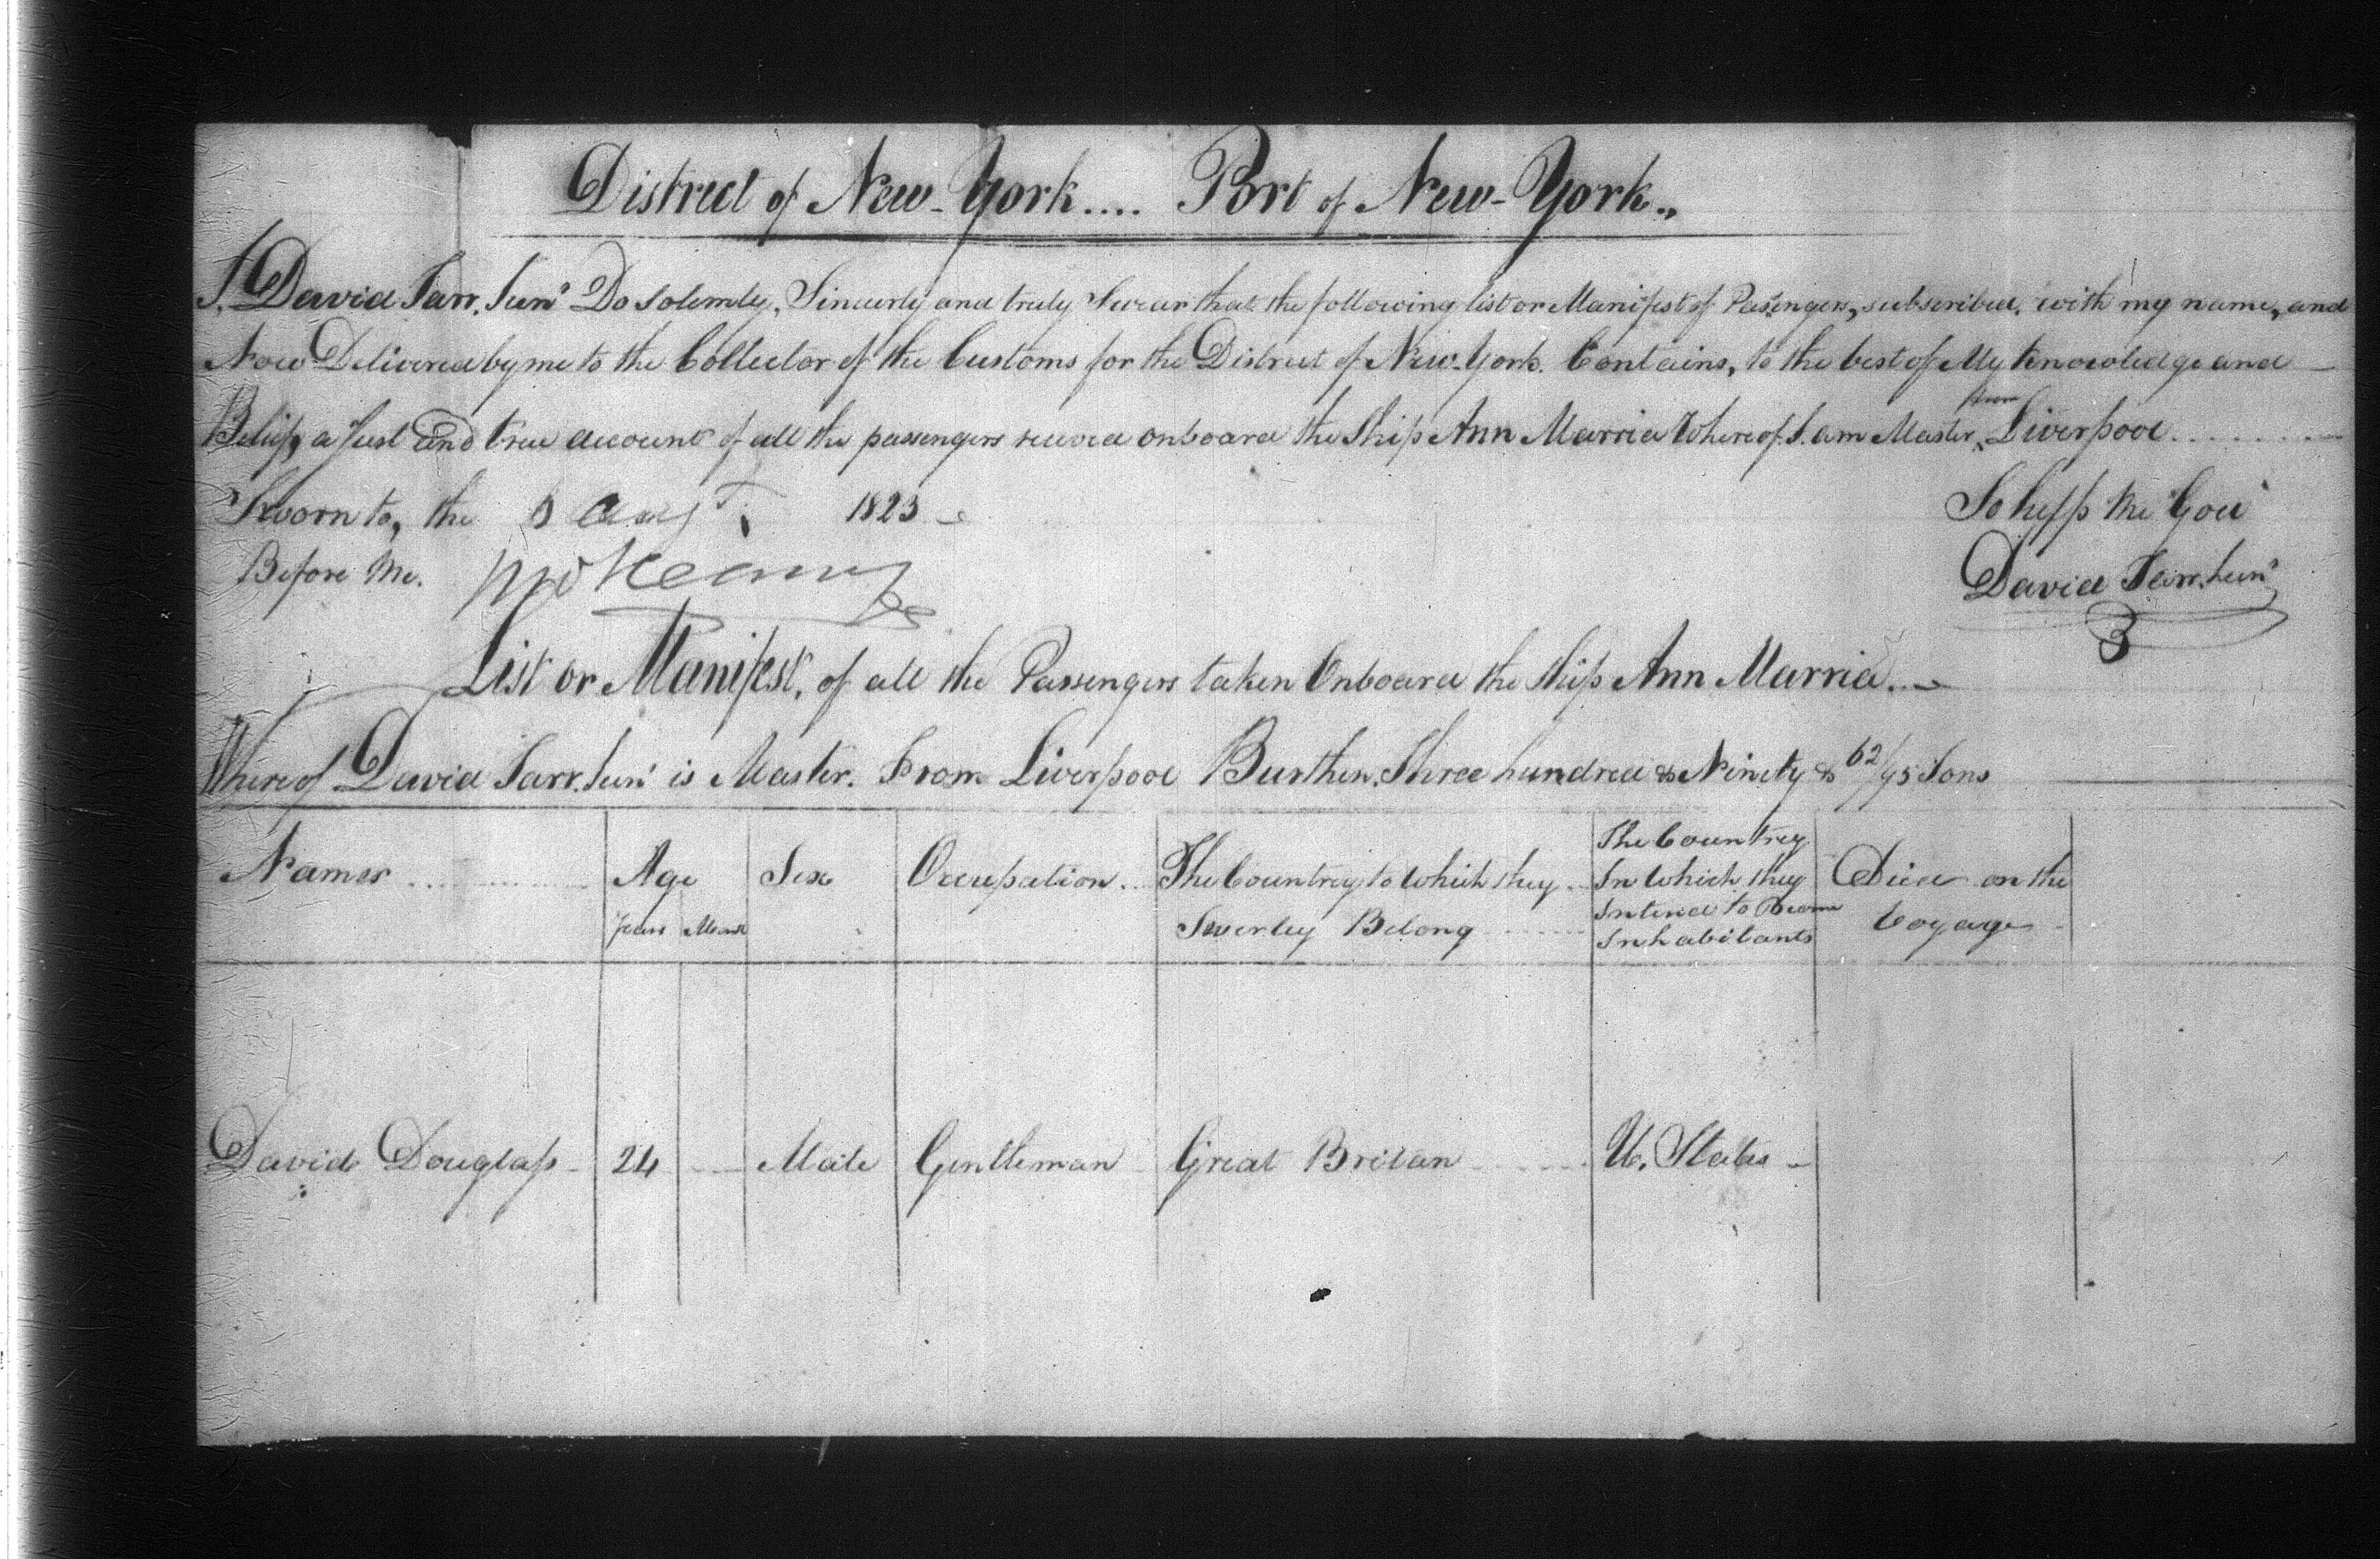 District of New-York.... Port of New-York..
I, David Tarr, Junr Do Solemly, Sincerly and truly Swear that the following list or Manifest of Passengers, subscribed, with my name, and
Now Delivered by me to the Collector of the Customs for the District of New-York. Contains, to the best of My Knowoledge and
Belief, a Just and true account of all the passengers received onboard the Ship Ann Marria Whereof I am Master, from Liverpool
Sworn to, the Augt. 1823
So help Me God
Before Me.
David Tarr. Junr
List or Manifest, of all the Passengers taken Onboard the ship Ann Marria.
Whereof David Tarr. Junr is Master. From Liverpool Burthen. Three hundred & Ninety & 62/95 Tons
Names Age Sex Occupation The Country to Which they Swerley Belong The Countrey In Which they Intend to Become Inhabitants Died on the Voyage
Years Month
David Douglass 24 Male Gentleman Great Britan U. States